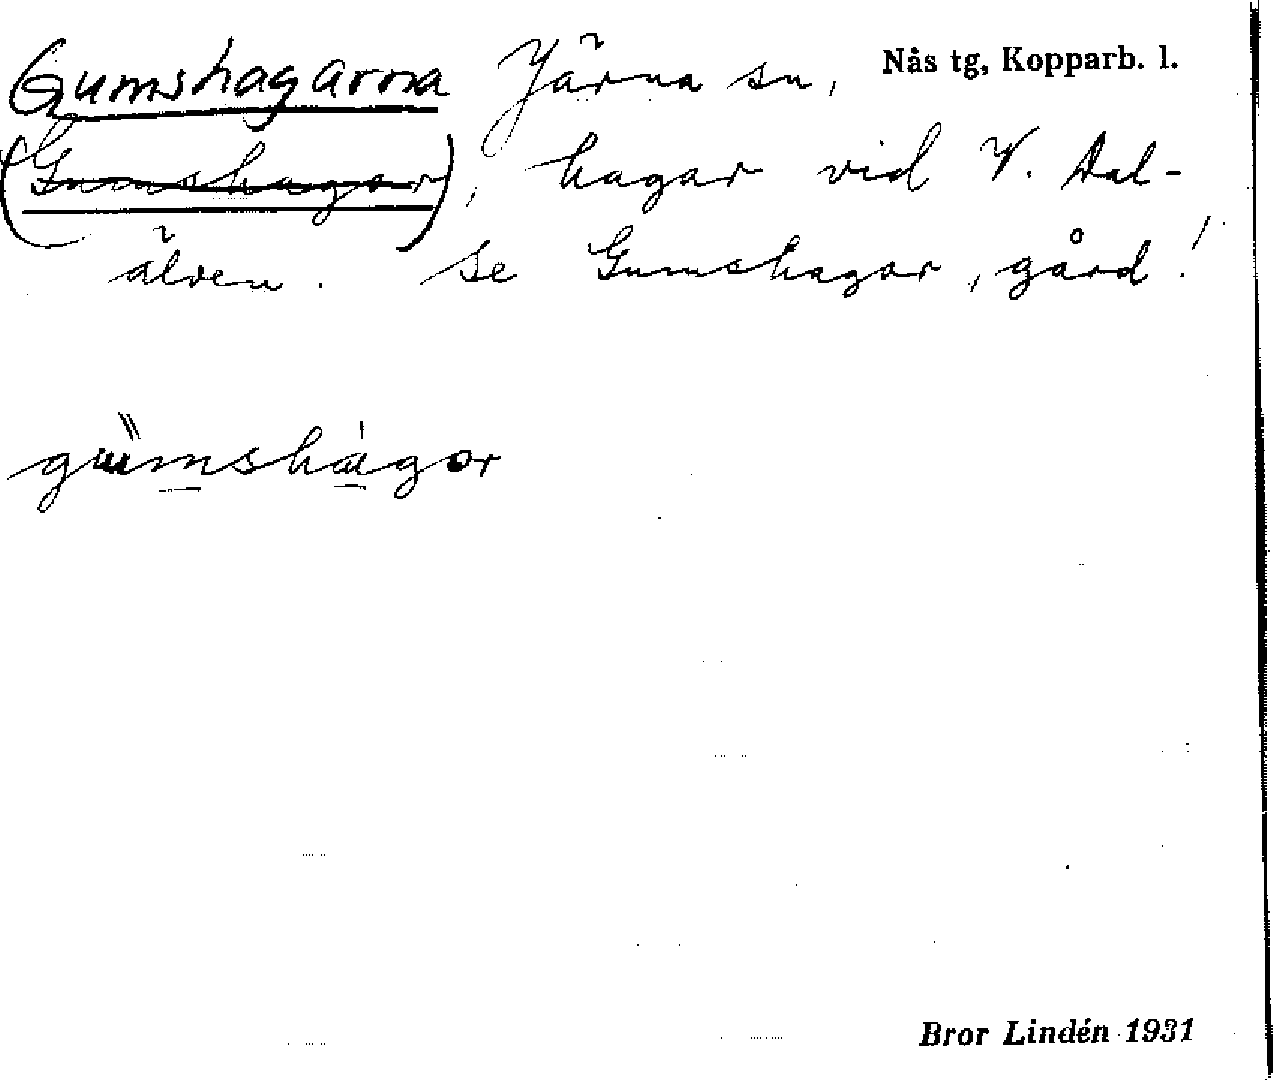 Gumshagarna Järna sn, Nås tg, Kopparb. l.
(Gumshagar), hagar vid V. Dal-
älven. Se Gumshagar, gård!
gumshagor
Bror Lindén 1931